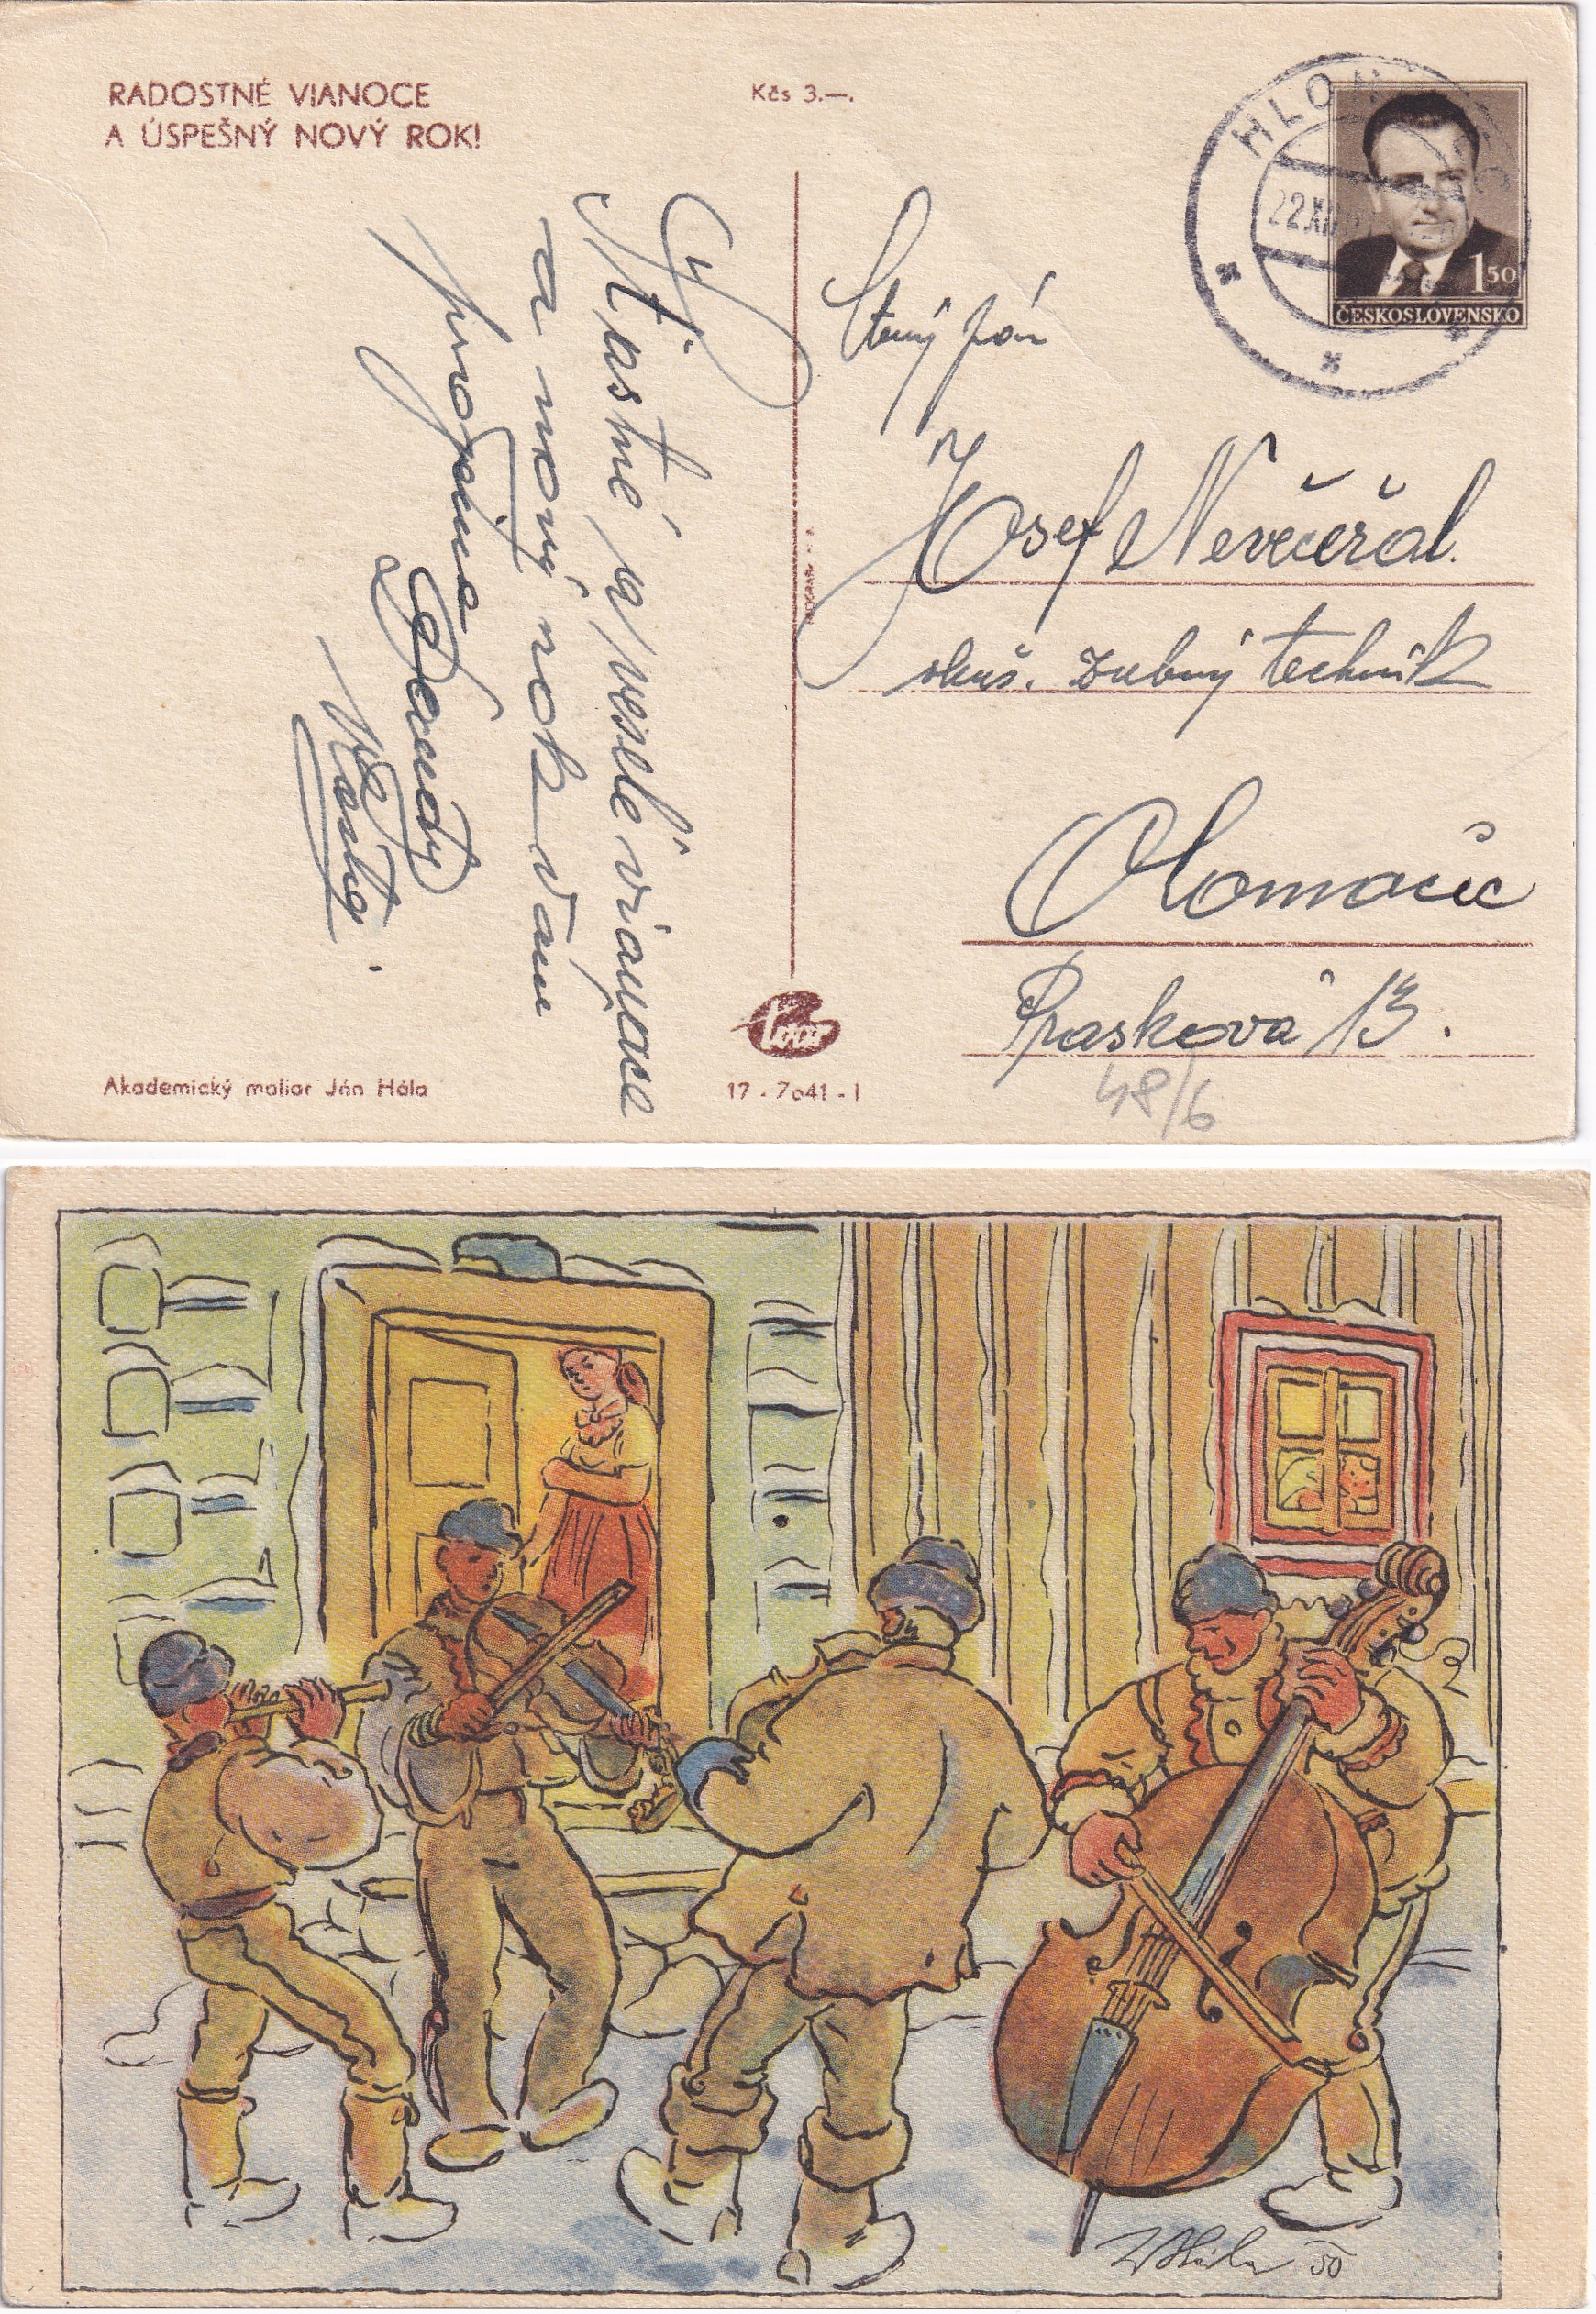 RADOSTNÉ VIANOCE
A ÚSPEŠNÝ NOVÝ ROK!
Kčs 3.—.
HLO
22.XII
1 50
ČESKOSLOVENSKO
Šťastné a veselé vianoce
a nový rok Vám
Josef Nevěčeřal.
zkuš. zubný technik
Olomouc
Praskova 13.
48/6
Akademický maliar Ján Hála
Tvar
17 - 7041 - I
J Hála 50